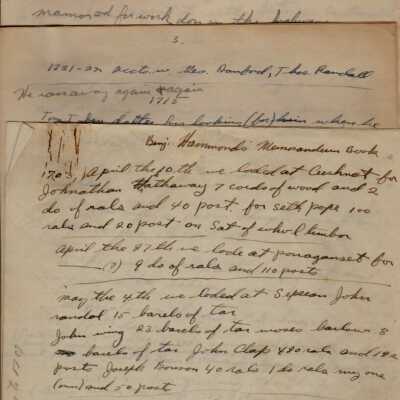 mamorod for work don in the
3.
1721-22 acct. w. Geo. Danford, Thos. Randall
He ran away again again
1715
looking (for) him where he
Benj. Hammonds Memorandum Book
1703, April the 10th we loded at Cushnet for
Johnathan Hathaway 7 cords of wood and 2
do of rals and 40 post. for seth pope 100
rals and 20 post on Sat of whol timbor
April the 27th we lode at ponaganset for
(?) 9 do of rals and 110 posts
may the 4th we loded at Sipecan John
randal 15 barels of tar
John wing 23 barels of tar moses barlow 8
barels of tar John Clap 480 rals and 182
posts Joseph Benson 40 rals 1 do rals my one
(own) and 50 post